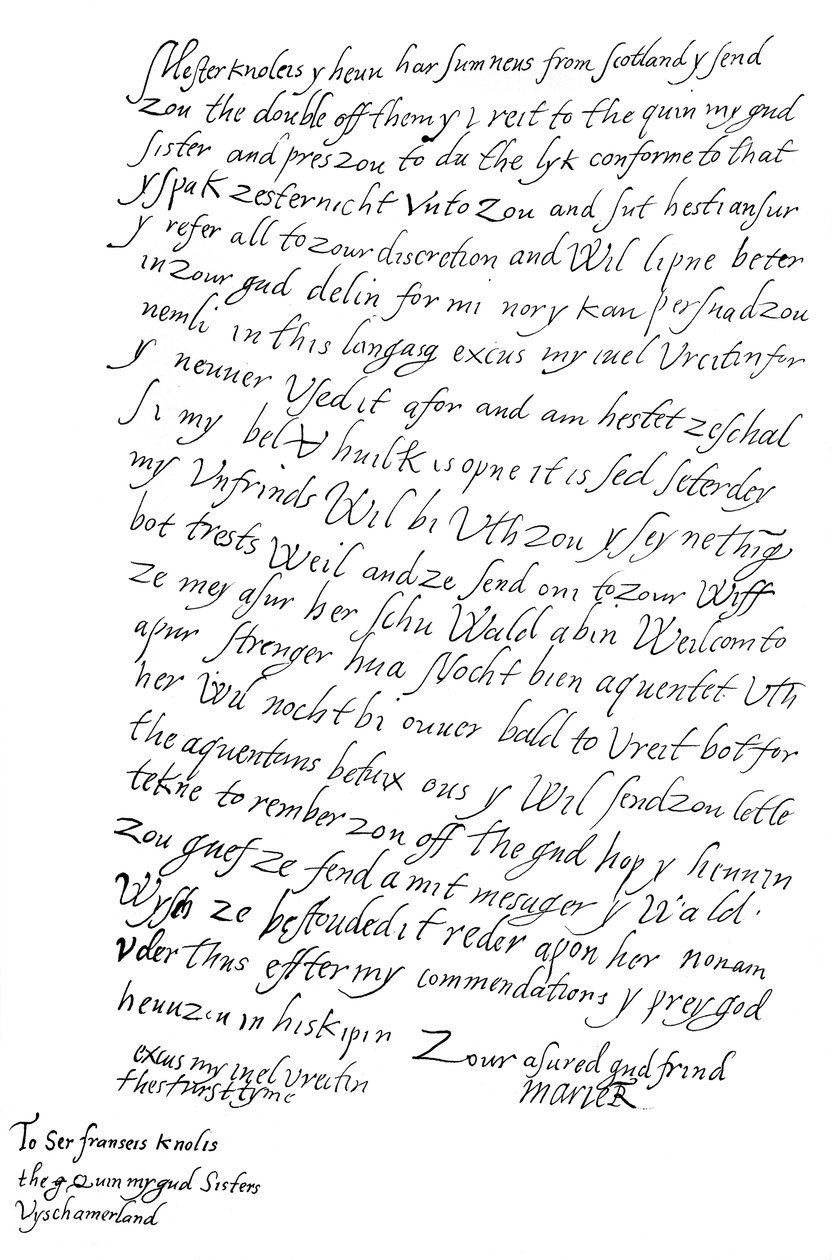 Mester knoleis y heuu har sum neus from scotland y send
zou the double off them y i vreit to the quin my gud
sister and pres zou to du the lyk conforme to that
y spak zesternicht vnto zou and sut hesti ansur
y refer all to zour discretion and wil lipne beter
in zour gud delin for mi nor y kan persuad zou
nemli in this langasg excus my iuel vreitin for
y neuuer vsed it afor and am hestet ze schal
si my bel vhuilk is opne it is sed seterdey
my vnfrinds wil bi vth zou y sey nething
bot trests weil and ze send oni to zour wiff
ze mey asur her schu wald a bin weilcom to
apur strenger hua nocht bien aquentet vth
her wil nocht bi ouuer bald to vreit bot for
the aquentans betuix ous y wil send zou letle
tekne to rember zou off the gud hop y heuuin
zou guef ze fend a mit mesager y wald
wysch ze bestouded it reder apon her non am
vder thus effter my commendations y prey god
heuu zou in his kipin
Zour asured gud frind
Marie R
excus my iuel vreitin
thes furst tyme
To Ser franseis knolis
the Quin my gud Sisters
Vyschamerland